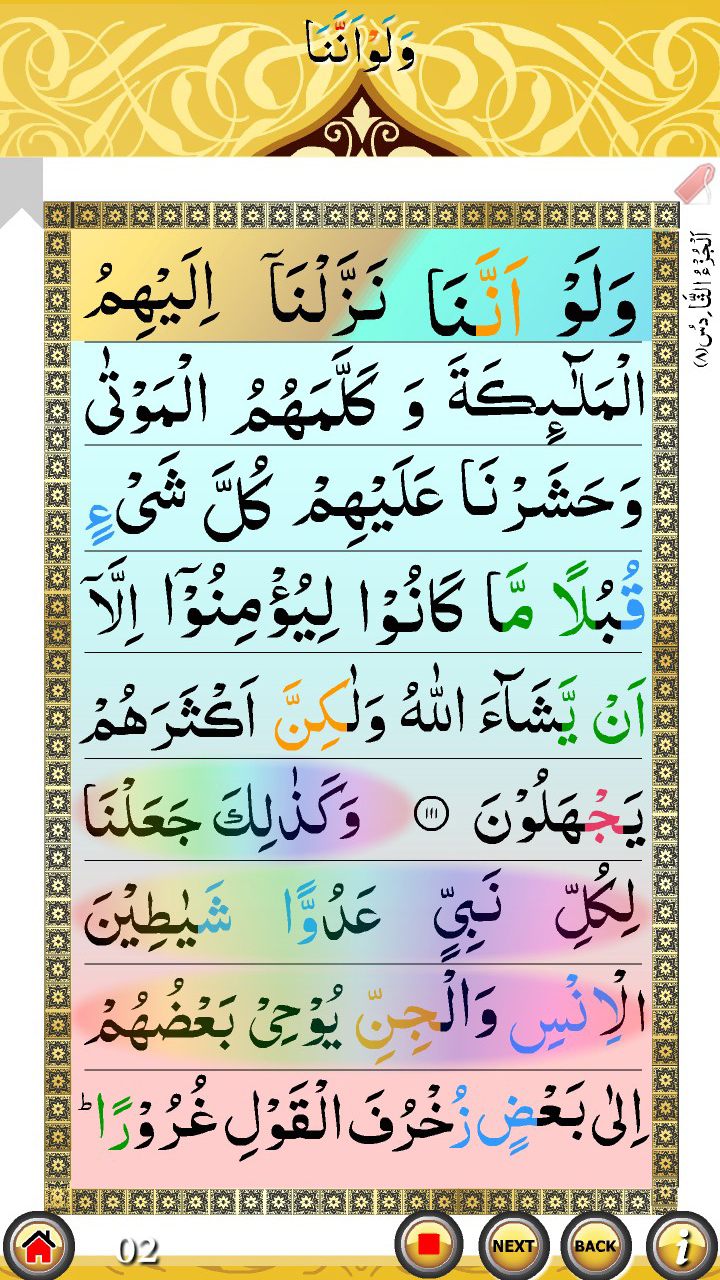 وَلَوْاَنَّنَا
وَلَوْ اَنَّنَا نَزَّلْنَاۤ اِلَيْهِمُ
الْمَلٰٓئِكَةَ وَ كَلَّمَهُمُ الْمَوْتٰى
وَحَشَرْنَا عَلَيْهِمْ كُلَّ شَىْءٍ
قُبُلًا مَّا كَانُوْا لِيُؤْمِنُوْۤا اِلَّاۤ
اَنْ يَّشَآءَ اللّٰهُ وَلٰكِنَّ اَكْثَرَهُمْ
يَجْهَلُوْنَ ۝۱۱۱ وَكَذٰلِكَ جَعَلْنَا
لِكُلِّ نَبِىٍّ عَدُوًّا شَيٰطِيْنَ
الْاِنْسِ وَالْجِنِّ يُوْحِىْ بَعْضُهُمْ
اِلٰى بَعْضٍ زُخْرُفَ الْقَوْلِ غُرُوْرًا ؕ
اَلْجُزْءُ (۸)
02
NEXT
BACK
i